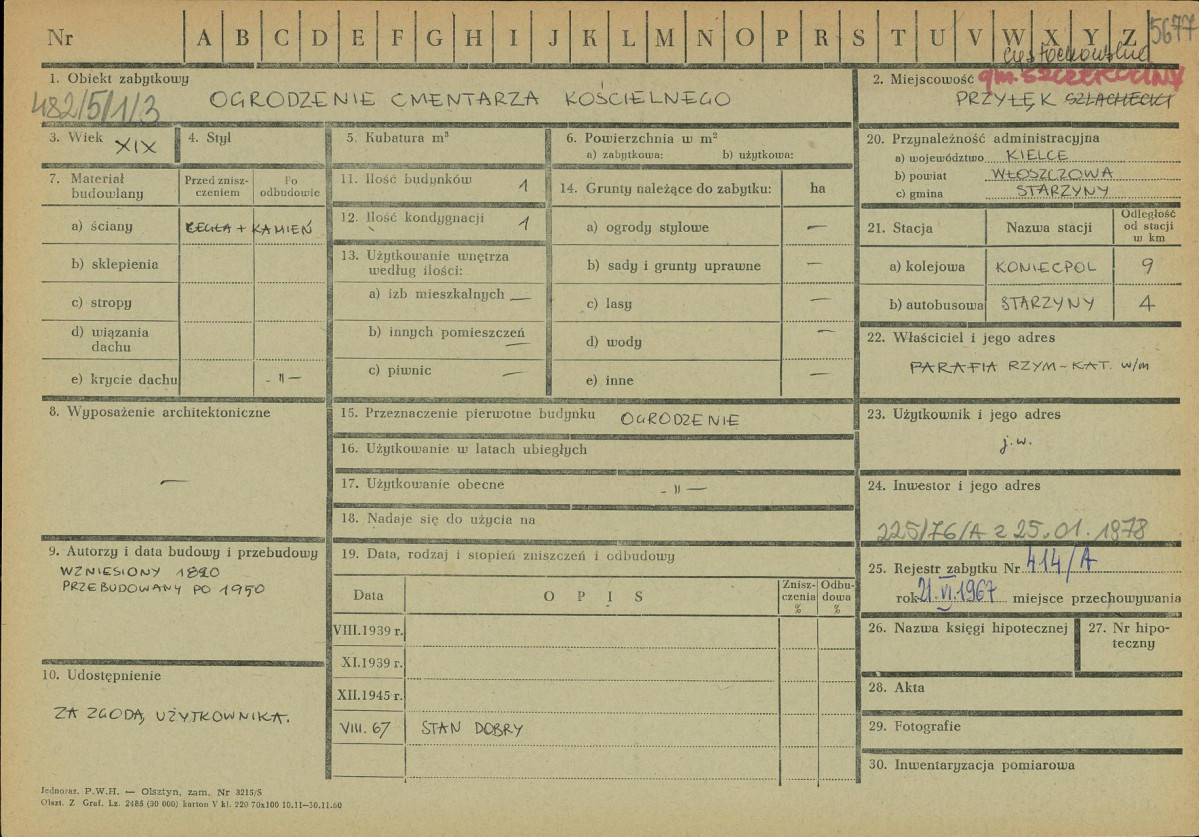 Nr A B C D E F G H I J K L M N O P R S T U V W X Y Z 5677
częstochowskie
1. Obiekt zabytkowy
482/5/1/3
OGRODZENIE CMENTARZA KOŚCIELNEGO
2. Miejscowość gm. SZCZEKOCINY
PRZYŁĘK SZLACHECKI
3. Wiek XIX
4. Styl
5. Kubatura m³
6. Powierzchnia w m²
a) zabytkowa: b) użytkowa:
20. Przynależność administracyjna
a) województwo KIELCE
b) powiat WŁOSZCZOWA
c) gmina STARZYNY
7. Materiał budowlany
Przed zniszczeniem
Po odbudowie
a) ściany CEGŁA + KAMIEŃ
b) sklepienia
c) stropy
d) wiązania dachu
e) krycie dachu - " -
11. Ilość budynków 1
12. Ilość kondygnacji 1
13. Użytkowanie wnętrza
według ilości:
a) izb mieszkalnych —
b) innych pomieszczeń —
c) piwnic —
14. Grunty należące do zabytku: ha
a) ogrody stylowe —
b) sady i grunty uprawne —
c) lasy —
d) wody —
e) inne —
21. Stacja Nazwa stacji Odległość od stacji w km
a) kolejowa KONIECPOL 9
b) autobusowa STARZYNY 4
22. Właściciel i jego adres
PARAFIA RZYM-KAT. w/m
8. Wyposażenie architektoniczne
—
15. Przeznaczenie pierwotne budynku OGRODZENIE
16. Użytkowanie w latach ubiegłych
17. Użytkowanie obecne - " —
18. Nadaje się do użycia na
23. Użytkownik i jego adres
j.w.
24. Inwestor i jego adres
225/76/A z 25.01.1978
9. Autorzy i data budowy i przebudowy
WZNIESIONY 1820
PRZEBUDOWANY PO 1950
19. Data, rodzaj i stopień zniszczeń i odbudowy
Data O P I S Zniszczenia % Odbudowa %
VIII.1939 r.
XI.1939 r.
XII.1945 r.
VIII. 67 STAN DOBRY
25. Rejestr zabytku Nr 414/A
rok 21.VI.1967 miejsce przechowywania
26. Nazwa księgi hipotecznej
27. Nr hipoteczny
10. Udostępnienie
ZA ZGODĄ UŻYTKOWNIKA.
28. Akta
29. Fotografie
30. Inwentaryzacja pomiarowa
Jednoraz. P.W.H. — Olsztyn, zam. Nr 3215/S
Olszt. Z Graf. Lz. 2485 (30 000) karton V kl. 220 70x100 10.11—30.11.60